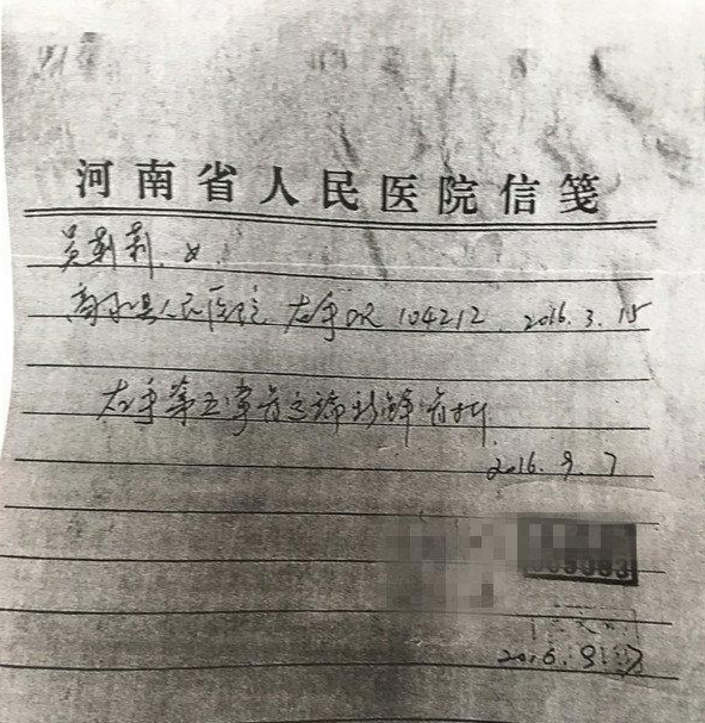 河南省人民医院信笺
吴莉莉、女.
商水县人民医院 左手DR 104212. 2016.3.15
左手第五掌骨远端新鲜骨折.
2016.9.7
2016.9.7